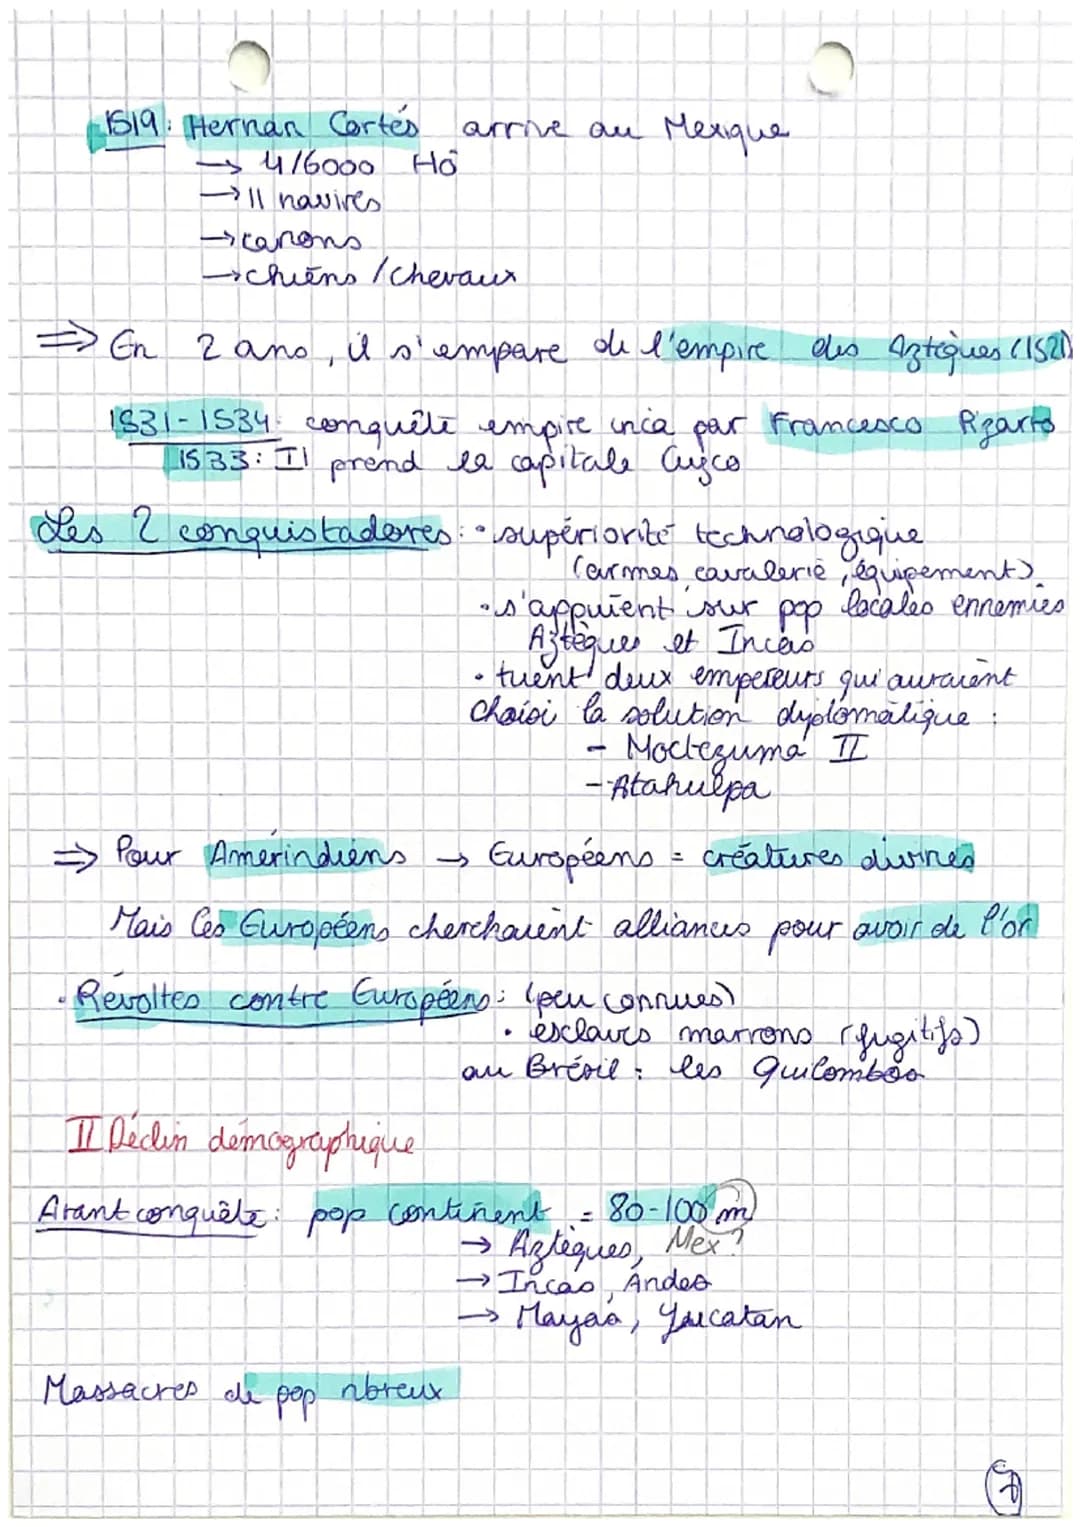 1519: Hernán Cortés arrive au Mexique
→ 4/6000 Hô
→ 11 navires
→ canons
→ chiens / chevaux
⇒ En 2 ans, il s'empare de l'empire des Aztèques (1521)
1531-1534: conquête empire inca par Francesco Pizarro
1533: Il prend la capitale Cuzco
Les 2 conquistadores: • supériorité technologique
(armes, cavalerie, équipement)
• s'appuient sur pop locales ennemies
Aztèques et Incas
• tuent deux empereurs qui auraient
choisi la solution diplomatique :
- Moctezuma II
- Atahulpa
⇒ Pour Amérindiens → Européens = créatures divines
Mais les Européens cherchaient alliances pour avoir de l'or
• Révoltes contre Européens: (peu connues)
• esclaves marrons (fugitifs)
au Brésil : les Quilombos
II Déclin démographique
Avant conquête: pop continent = 80-100 m
→ Aztèques, Mex ?
→ Incas, Andes
→ Mayas, Yucatan
Massacres de pop nbreux